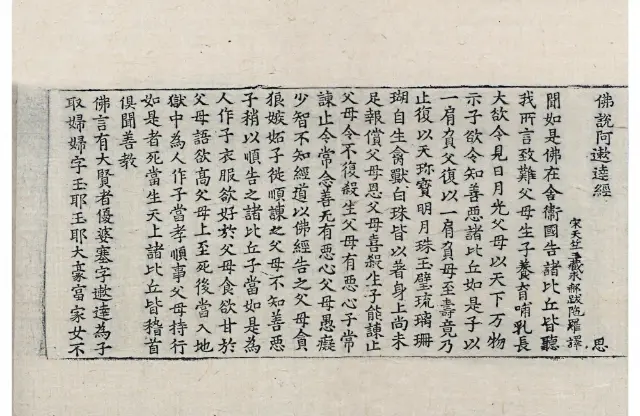 佛說阿遬達經 思
宋天竺三藏求那跋陀羅譯
聞如是佛在舍衛國告諸比丘皆聽
我所言致難父母生子養育哺乳長
大欲令見日月光父母以天下万物
示子欲令知善惡諸比丘如是子以
一肩負父復以一肩負母至壽竟乃
止復以天弥寶明月珠玉璧琉璃珊
瑚自生禽獸白珠皆以著身上尚未
足報償父母恩父母喜殺生子能諫止
父母令不復殺生父母有惡心子常
諫止令常念善无有惡心父母愚癡
少智不知經道以佛經告之父母貪
狼嫉妬子徙順諫之父母不知善惡
子稍以順告之諸比丘子當如是為
人作子衣服欲好於父母食欲甘於
父母語欲高父母上至死後當入地
獄中為人作子當孝順事父母持行
如是者死當生天上諸比丘皆稽首
俱聞善教
佛言有大賢者優婆塞字遬達為子
取婦婦字玉耶玉耶大豪富家女不